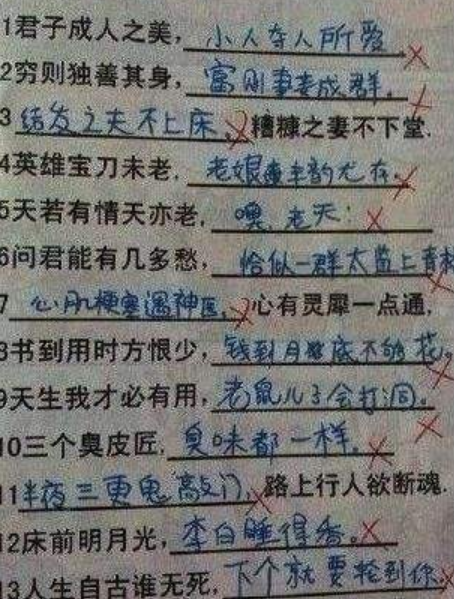 1君子成人之美,小人夺人所爱
2穷则独善其身,富则妻妾成群。
3结发之夫不上床。糟糠之妻不下堂.
4英雄宝刀未老,老娘丰韵尤存。
5天若有情天亦老,噢,老天!
6问君能有几多愁,恰似一群太监上青楼
7心肌梗塞遇神医。心有灵犀一点通,
8书到用时方恨少,钱到月底不够花。
9天生我才必有用,老鼠儿子会打洞。
10三个臭皮匠,臭味都一样。
11半夜三更鬼敲门,路上行人欲断魂.
12床前明月光,李白睡得香。
13人生自古谁无死,下个就要轮到你。